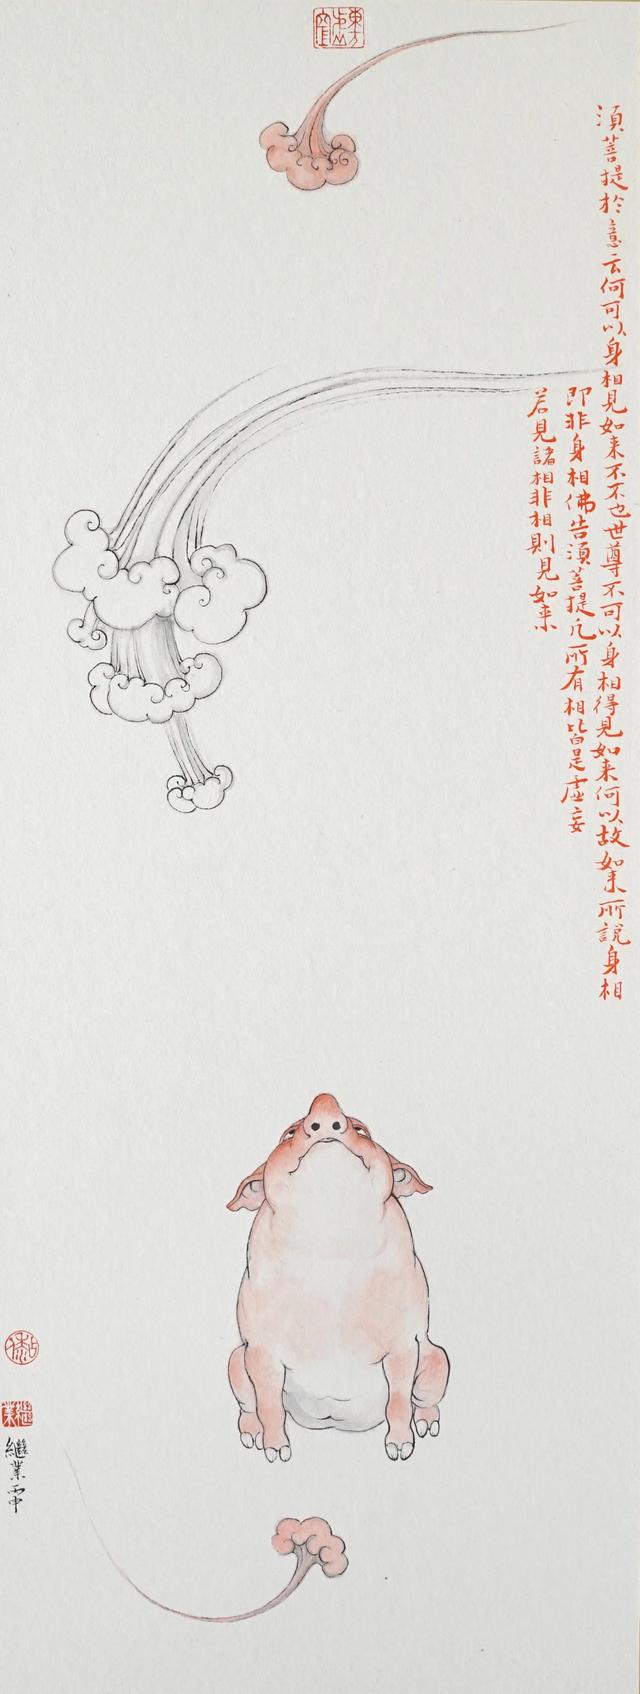 湏菩提於意云何可以身相見如来不不也世尊不可以身相得見如来何以故如来所說身相
即非身相佛告湏菩提凡所有相皆是虛妄
若見諸相非相則見如来
繼業
繼業丙申